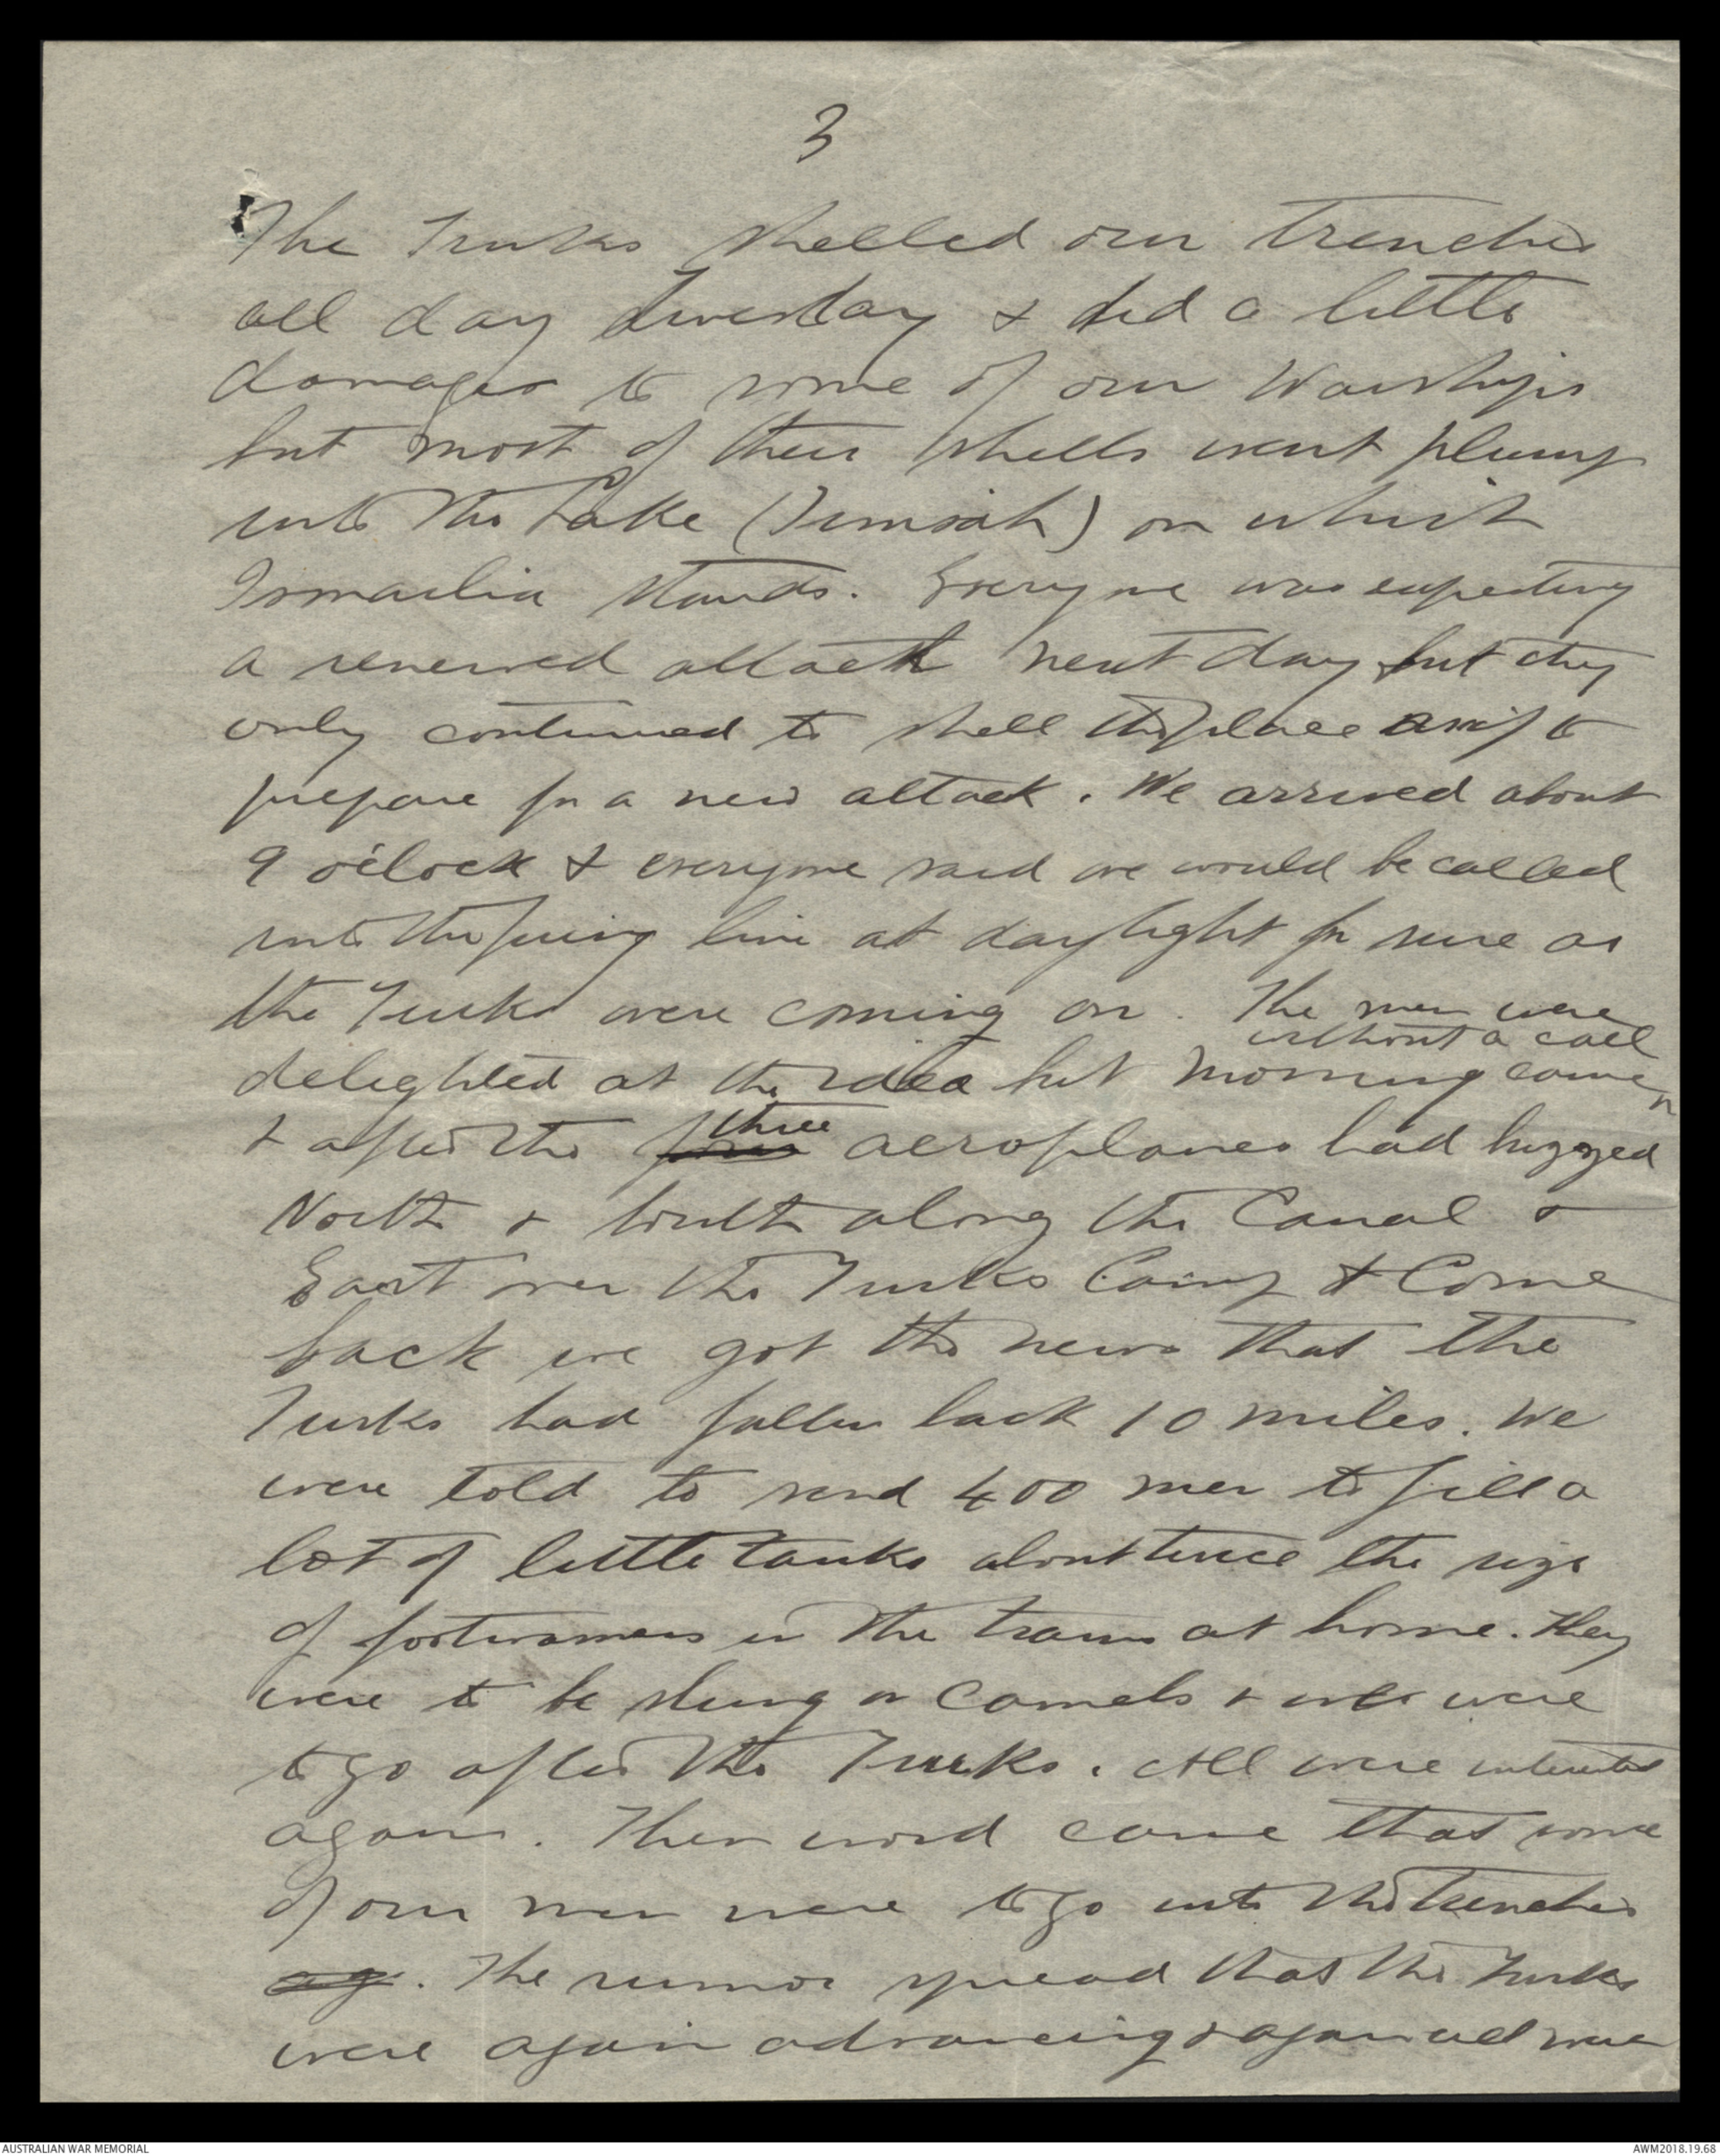 3
The Turks shelled our trenches
all day Tuesday & did a little
damage to some of our Warships
but most of their shells went plump
into the Lake (Timsah) on which
Ismailia stands. Everyone was expecting
a renewed attack next day but they
only continued to shell the place as if to
prepare for a new attack. We arrived about
9 o'clock & everyone said we would be called
into the firing line at daylight for sure as
the Turks were coming on. The men were
without a call
delighted at the idea but morning came
& after the four three aeroplanes had buzzed
North & South along the Canal &
East over the Turks Camp & Come
back we got the news that the
Turks had fallen back 10 miles. We
were told to send 400 men to fill a
lot of little tanks about twice the size
of footwarmers in the trains at home. They
were to be slung on Camels & we were
to go after the Turks. All were interested
again. Then word came that some
of our men were to go into the trenches
ag. The rumor spread that the Turks
were again advancing & again all was
AUSTRALIAN WAR MEMORIAL
AWM2018.19.68